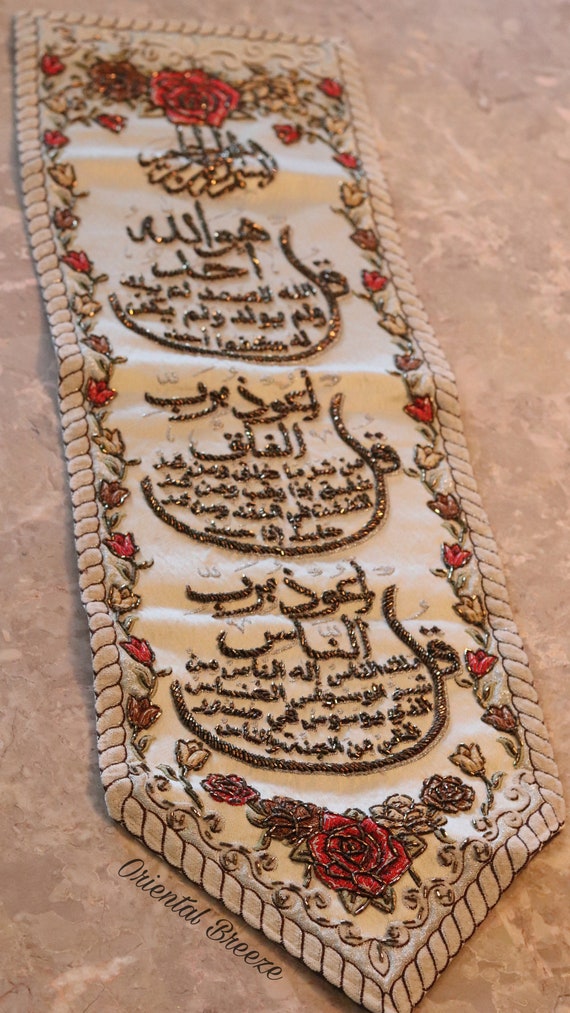 بسم الله الرحمن الرحيم
قل
هو الله
احد
الله الصمد لم يلد
ولم يولد ولم يكن
له كفوا احد
قل
اعوذ برب
الفلق
من شر ما خلق ومن شر
غاسق اذا وقب ومن شر
النفثت في العقد ومن شر
حاسد اذا حسد
قل
اعوذ برب
الناس
ملك الناس اله الناس من
شر الوسواس الخناس
الذي يوسوس في صدور
الناس من الجنة والناس
Oriental Breeze